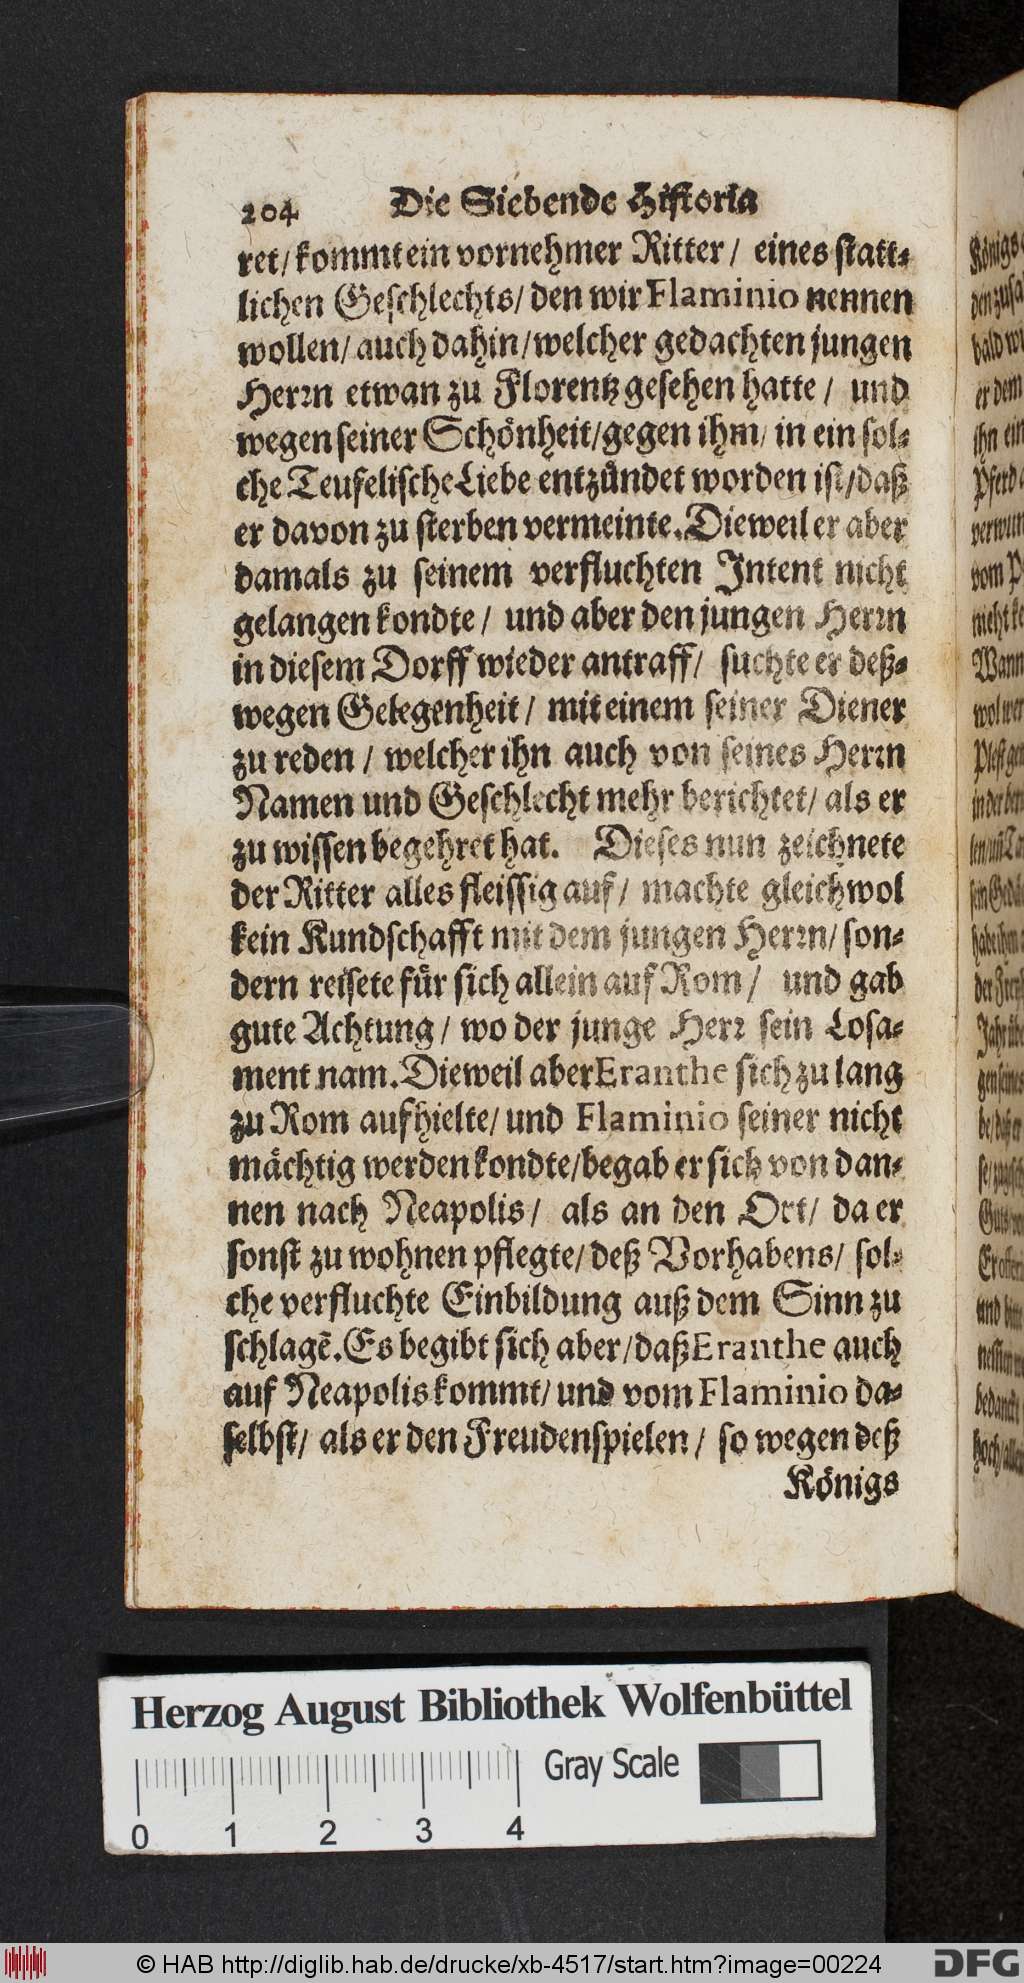 204 Die Siebende Historia
ret/ kommt ein vornehmer Ritter/ eines statt-
lichen Geschlechts/ den wir Flaminio nennen
wollen/ auch dahin/ welcher gedachten jungen
Herꝛn etwan zu Florentz gesehen hatte/ und
wegen seiner Schönheit/ gegen ihm/ in ein sol-
che Teufelische Liebe entzündet worden ist/ daß
er davon zu sterben vermeinte. Dieweil er aber
damals zu seinem verfluchten Intent nicht
gelangen kondte/ und aber den jungen Herꝛn
in diesem Dorff wieder antraff/ suchte er deß-
wegen Gelegenheit/ mit einem seiner Diener
zu reden/ welcher ihn auch von seines Herꝛn
Namen und Geschlecht mehr berichtet/ als er
zu wissen begehret hat. Dieses nun zeichnete
der Ritter alles fleissig auf/ machte gleichwol
kein Kundschafft mit dem jungen Herꝛn/ son-
dern reisete für sich allein auf Rom/ und gab
gute Achtung/ wo der junge Herꝛ sein Losa-
ment nam. Dieweil aber Eranthe sich zu lang
zu Rom aufhielte/ und Flaminio seiner nicht
mächtig werden kondte/ begab er sich von dan-
nen nach Neapolis/ als an den Ort/ da er
sonst zu wohnen pflegte/ deß Vorhabens/ sol-
che verfluchte Einbildung auß dem Sinn zu
schlagẽ. Es begibt sich aber/ daß Eranthe auch
auf Neapolis kommt/ und vom Flaminio da-
selbst/ als er den Freudenspielen/ so wegen deß
Königs
Herzog August Bibliothek Wolfenbüttel
Gray Scale
0 1 2 3 4
© HAB http://diglib.hab.de/drucke/xb-4517/start.htm?image=00224
DFG